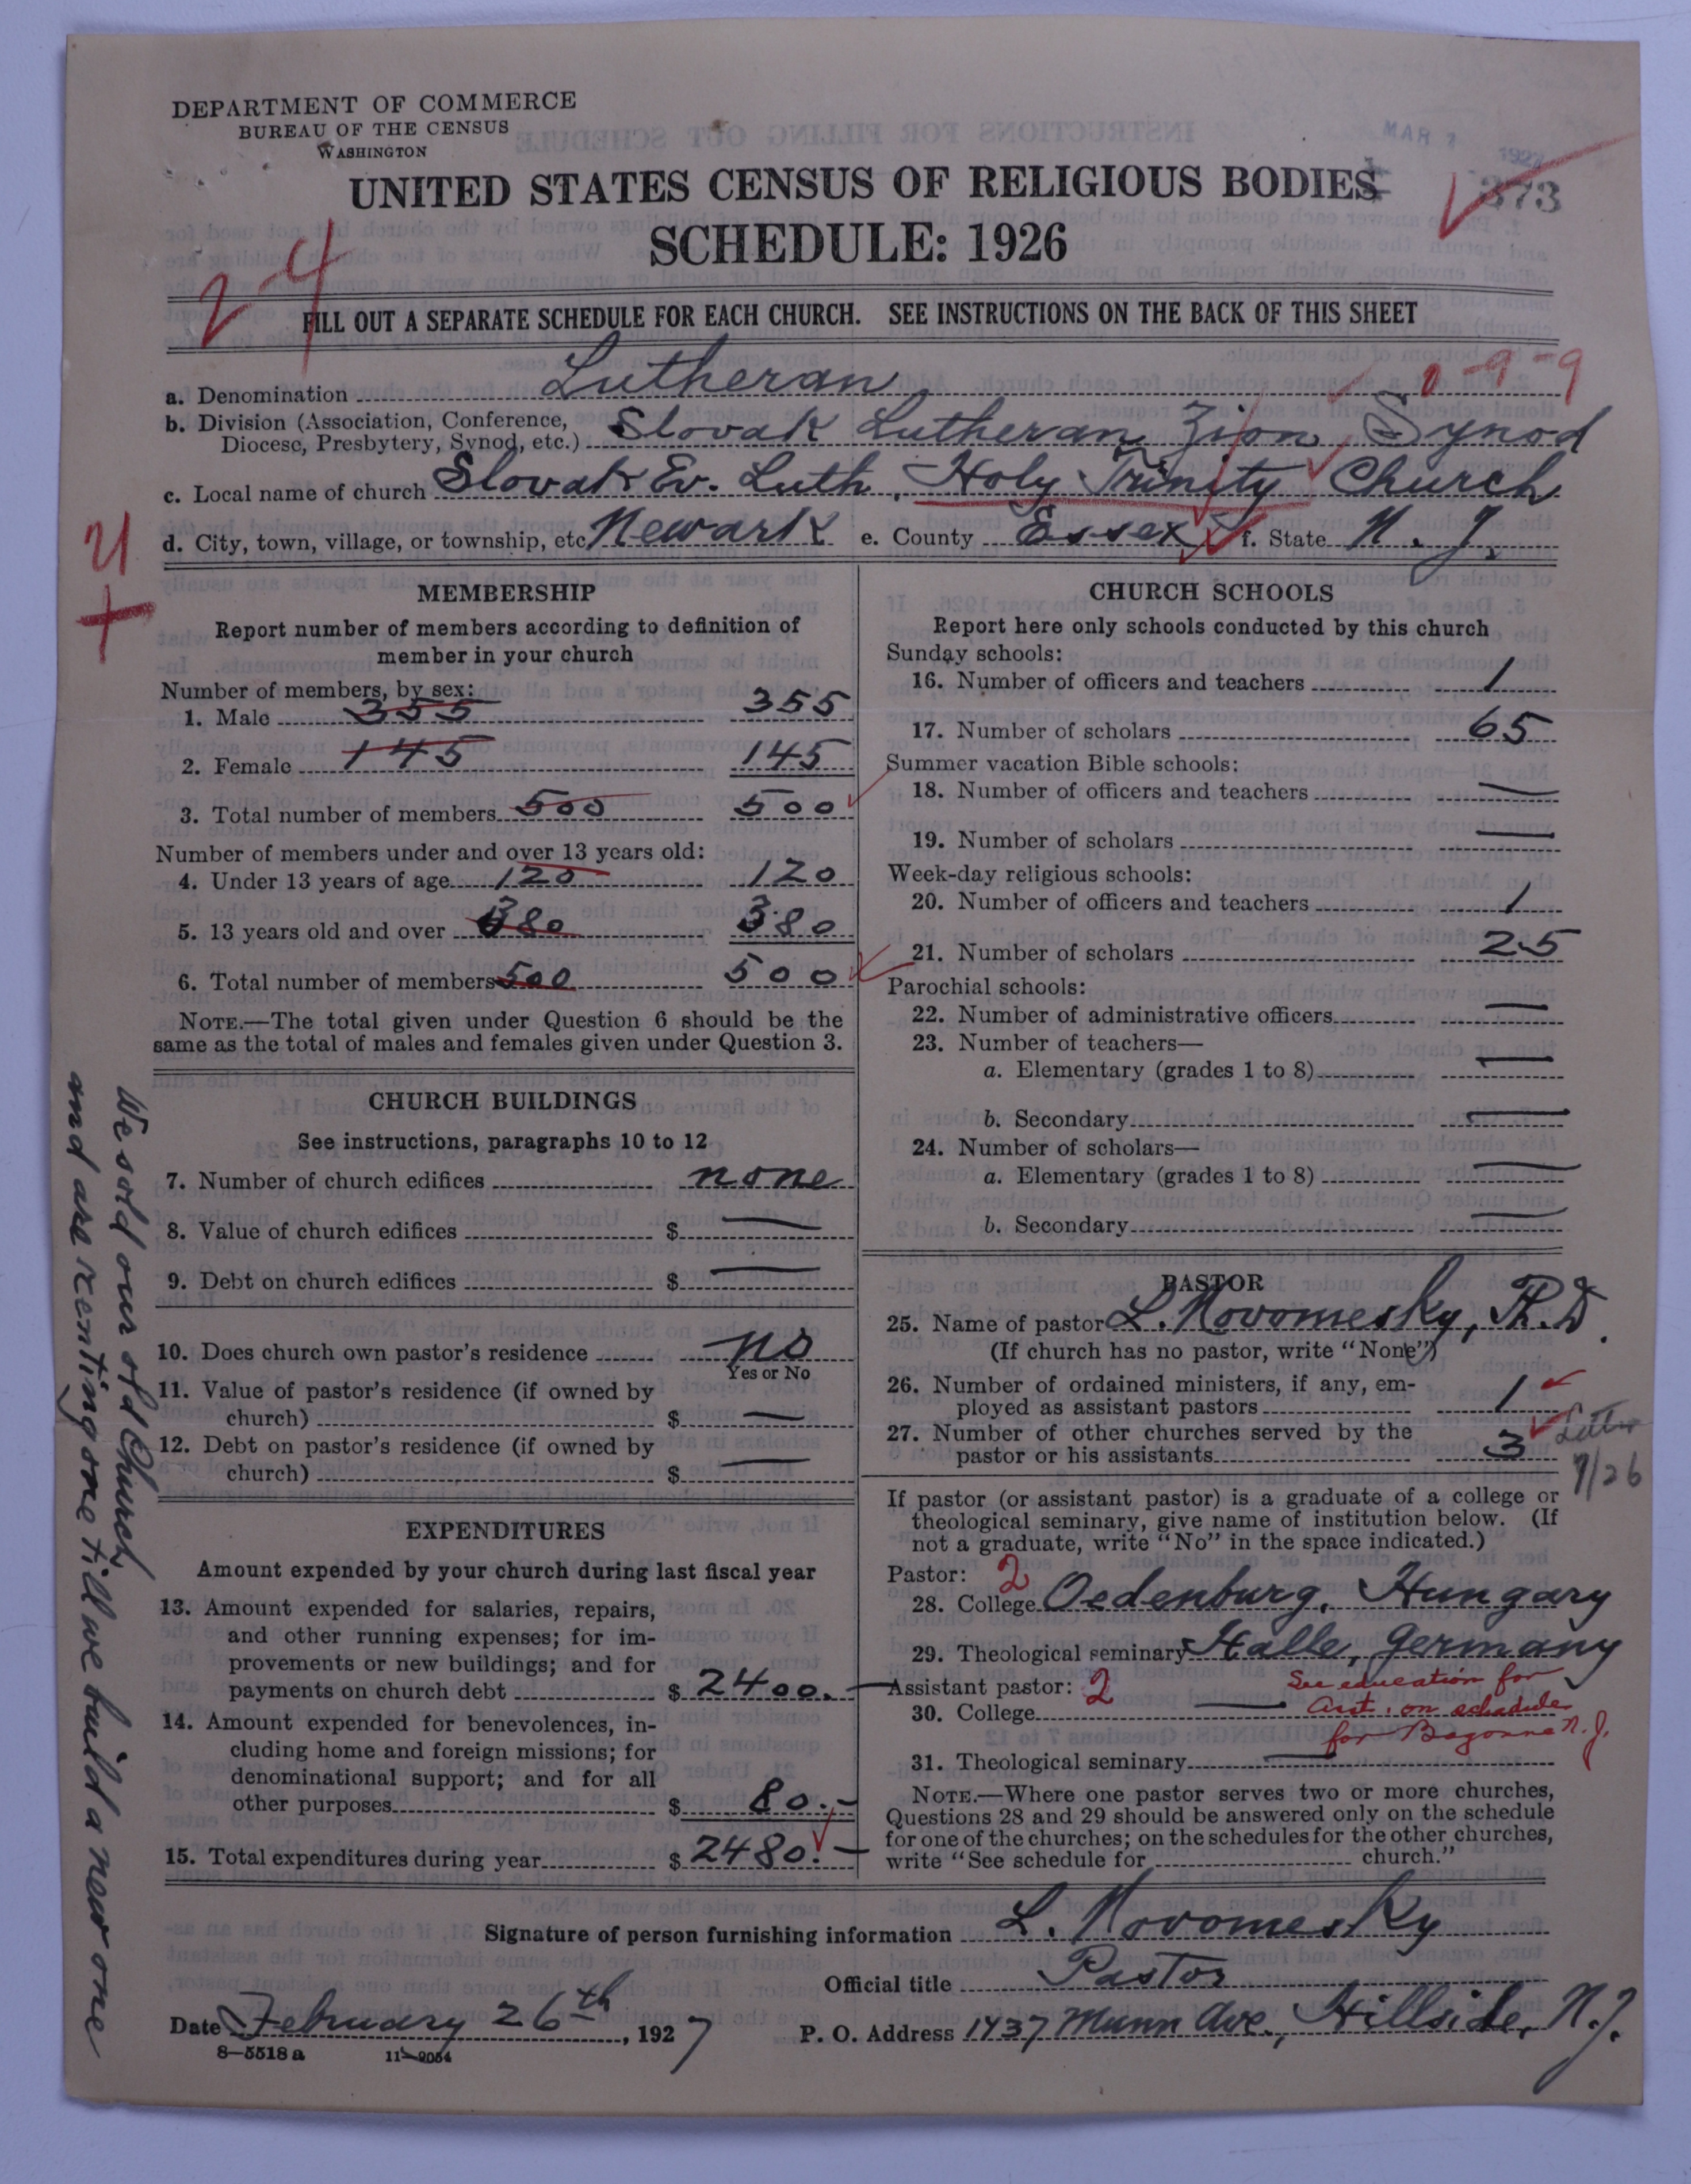 DEPARTMENT OF COMMERCE
BUREAU OF THE CENSUS
WASHINGTON
MAR 1927
373
UNITED STATES CENSUS OF RELIGIOUS BODIES
SCHEDULE: 1926
24
FILL OUT A SEPARATE SCHEDULE FOR EACH CHURCH. SEE INSTRUCTIONS ON THE BACK OF THIS SHEET
a. Denomination Lutheran
b. Division (Association, Conference,
Diocese, Presbytery, Synod, etc.) Slovak Lutheran Zion Synod
c. Local name of church Slovak Ev. Luth. Holy Trinity Church
d. City, town, village, or township, etc. Newark e. County Essex f. State N. J.
MEMBERSHIP
Report number of members according to definition of
member in your church
Number of members, by sex:
1. Male 355 355
2. Female 145 145
3. Total number of members 500 500
Number of members under and over 13 years old:
4. Under 13 years of age 120 120
5. 13 years old and over 380 380
6. Total number of members 500 500
NOTE.—The total given under Question 6 should be the
same as the total of males and females given under Question 3.
CHURCH BUILDINGS
See instructions, paragraphs 10 to 12
7. Number of church edifices none
8. Value of church edifices $ —
9. Debt on church edifices $ —
10. Does church own pastor's residence no
Yes or No
11. Value of pastor's residence (if owned by
church) $ —
12. Debt on pastor's residence (if owned by
church) $ —
EXPENDITURES
Amount expended by your church during last fiscal year
13. Amount expended for salaries, repairs,
and other running expenses; for im-
provements or new buildings; and for
payments on church debt $ 2400.—
14. Amount expended for benevolences, in-
cluding home and foreign missions; for
denominational support; and for all
other purposes $ 80.—
15. Total expenditures during year $ 2480.—
We sold our old Church,
and are renting one till we build a new one
CHURCH SCHOOLS
Report here only schools conducted by this church
Sunday schools:
16. Number of officers and teachers 1
17. Number of scholars 65
Summer vacation Bible schools:
18. Number of officers and teachers —
19. Number of scholars —
Week-day religious schools:
20. Number of officers and teachers 1
21. Number of scholars 25
Parochial schools:
22. Number of administrative officers —
23. Number of teachers—
a. Elementary (grades 1 to 8) —
b. Secondary —
24. Number of scholars—
a. Elementary (grades 1 to 8) —
b. Secondary —
PASTOR
25. Name of pastor L. Novomesky, Ph.D.
(If church has no pastor, write "None")
26. Number of ordained ministers, if any, em-
ployed as assistant pastors 1
27. Number of other churches served by the
pastor or his assistants 3
If pastor (or assistant pastor) is a graduate of a college or
theological seminary, give name of institution below. (If
not a graduate, write "No" in the space indicated.)
Pastor: 2
28. College Oedenburg, Hungary
29. Theological seminary Halle, Germany
Assistant pastor: 2 See education for
30. College — asst. on schedule
for Bayonne N. J.
31. Theological seminary —
NOTE.—Where one pastor serves two or more churches,
Questions 28 and 29 should be answered only on the schedule
for one of the churches; on the schedules for the other churches,
write "See schedule for church."
Signature of person furnishing information L. Novomesky
Official title Pastor
Date February 26th, 1927 P. O. Address 1437 Munn Ave., Hillside, N.J.
8—5518 a 11—9054